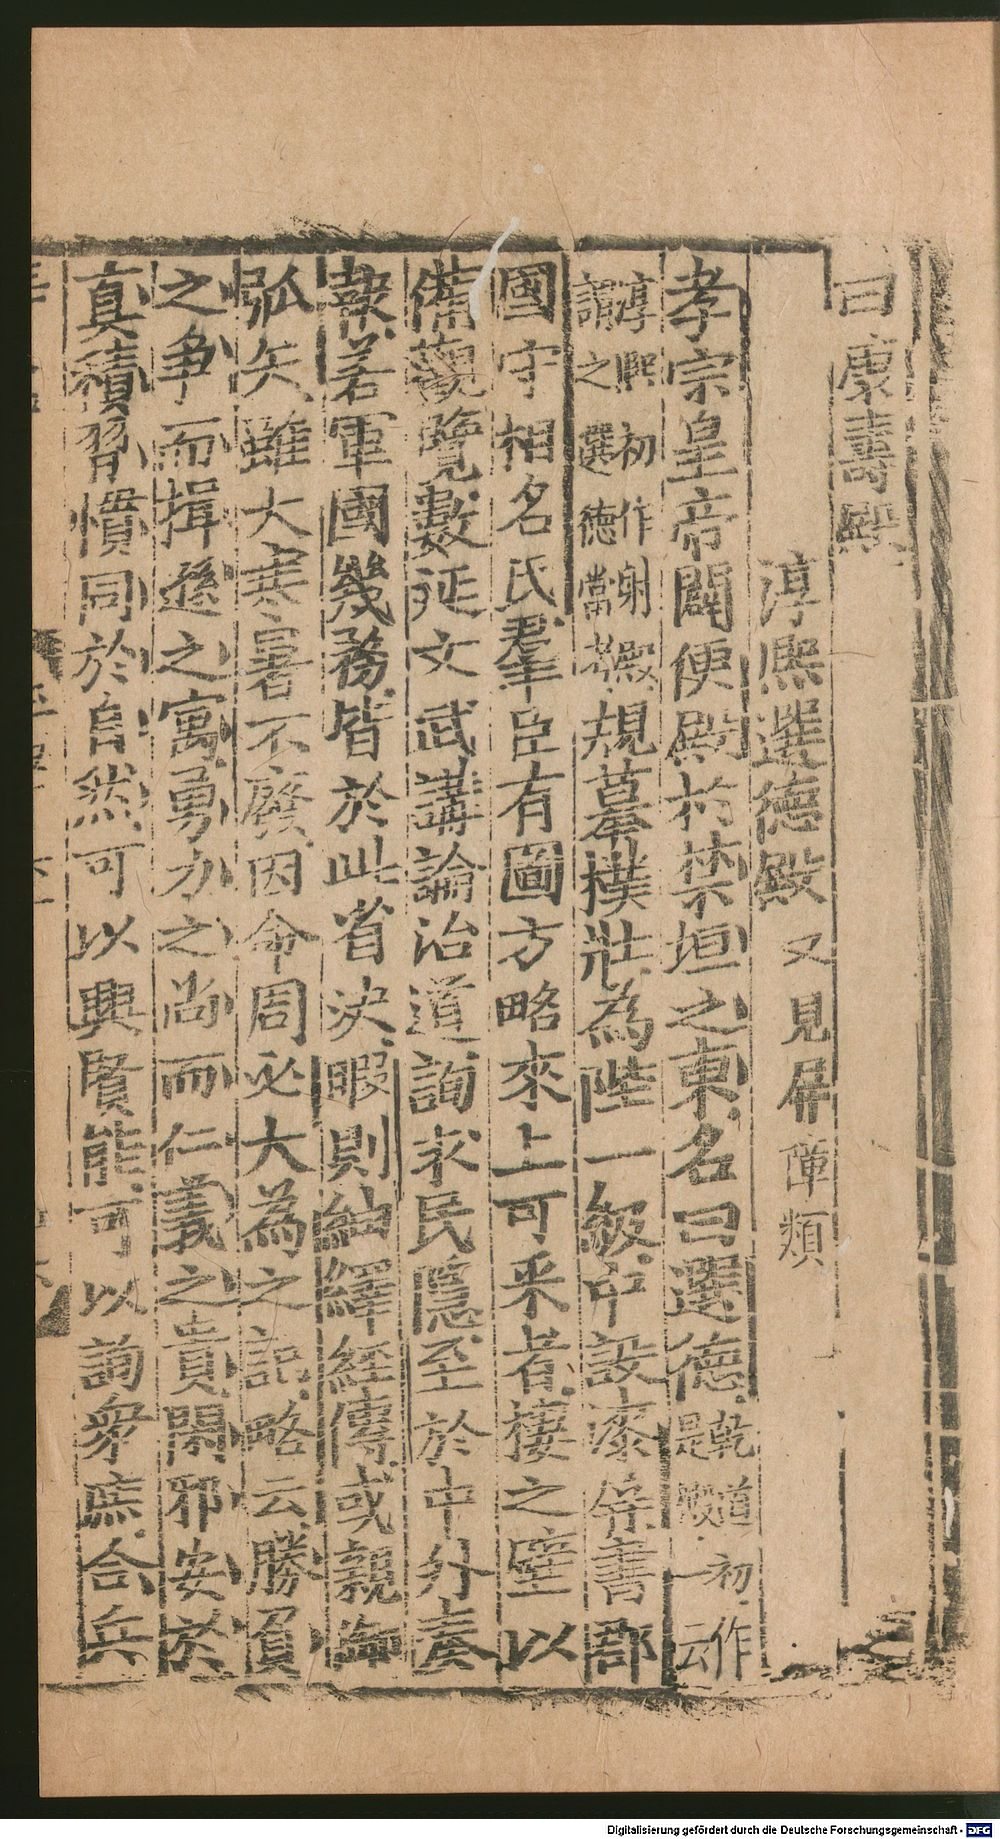 曰康壽殿
淳熙選德殿又見屏障類
孝宗皇帝闢便殿於禁垣之東名曰選德乾道初作是殿一云
淳熙初作射殿謂之選德當考規摹樸壯為陛一級中設漆屏書郡
國守相名氏羣臣有圖方略來上可采者棲之壁以
備觀覽數延文武講論治道詢求民隱至於中外奏
報軍國幾務皆於此省決暇則紬繹經傳或親御
弧矢雖大寒暑不廢因命周必大為之記略云勝負
之爭而揖遜之寓勇力之尚而仁義之責閑邪安於
真積習慣同於自然可以興賢能可以詢衆庶合兵
Digitalisierung gefördert durch die Deutsche Forschungsgemeinschaft - DFG